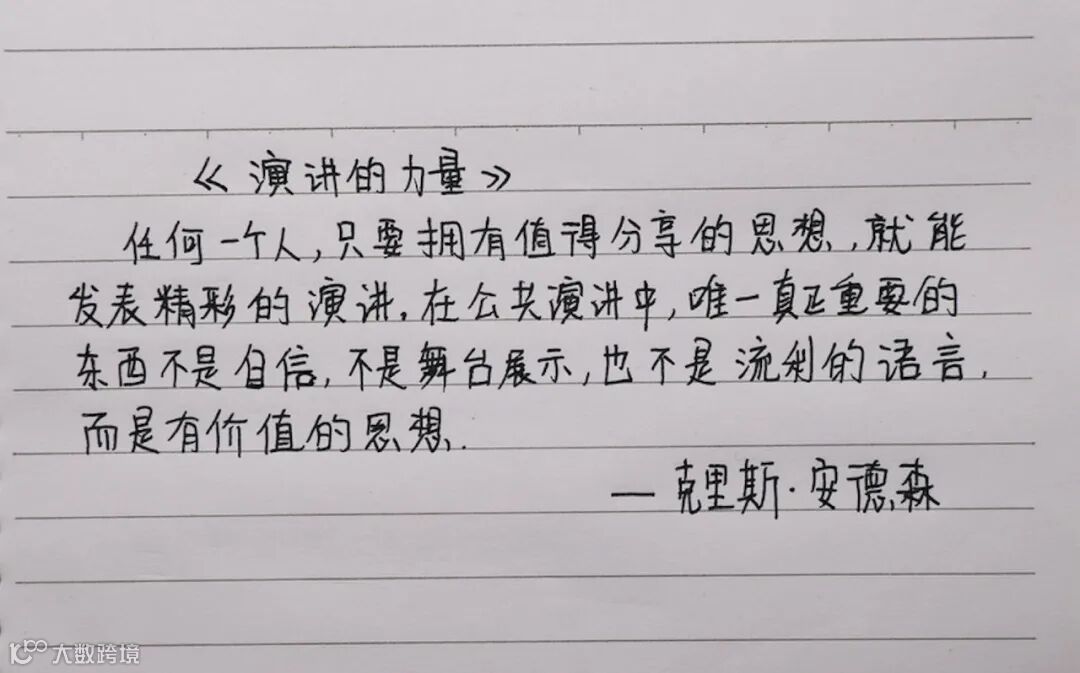 《演讲的力量》
任何一个人,只要拥有值得分享的思想,就能
发表精彩的演讲.在公共演讲中,唯一真正重要的
东西不是自信,不是舞台展示,也不是流利的语言,
而是有价值的思想.
— 克里斯·安德森
大数跨境